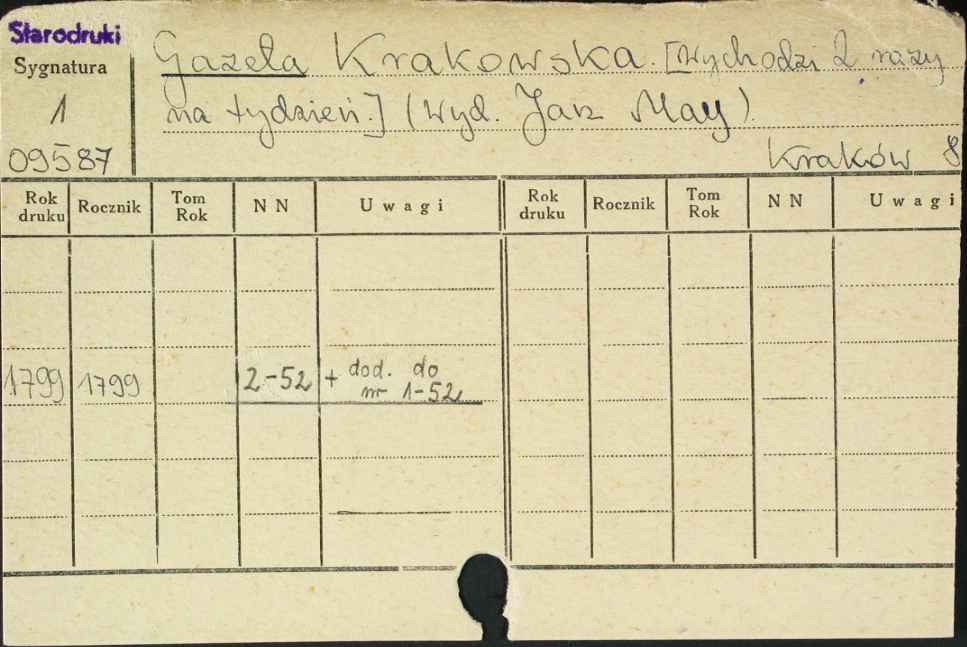 Starodruki
Sygnatura
1
09587
Gazeta Krakowska. [Wychodzi 2 razy
na tydzień.] (Wyd. Jan May).
Kraków 8
Rok druku Rocznik Tom Rok NN Uwagi Rok druku Rocznik Tom Rok NN Uwagi
1799 1799 2-52 + dod. do
nr 1-52